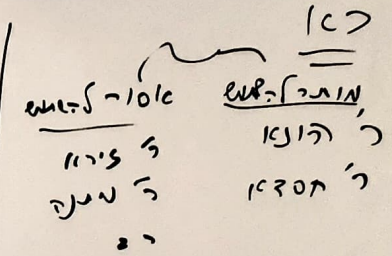 מותר להשתמש
ר' הונא
ר' חסדא
אסור להשתמש
ר' זירא
ר' מתנה